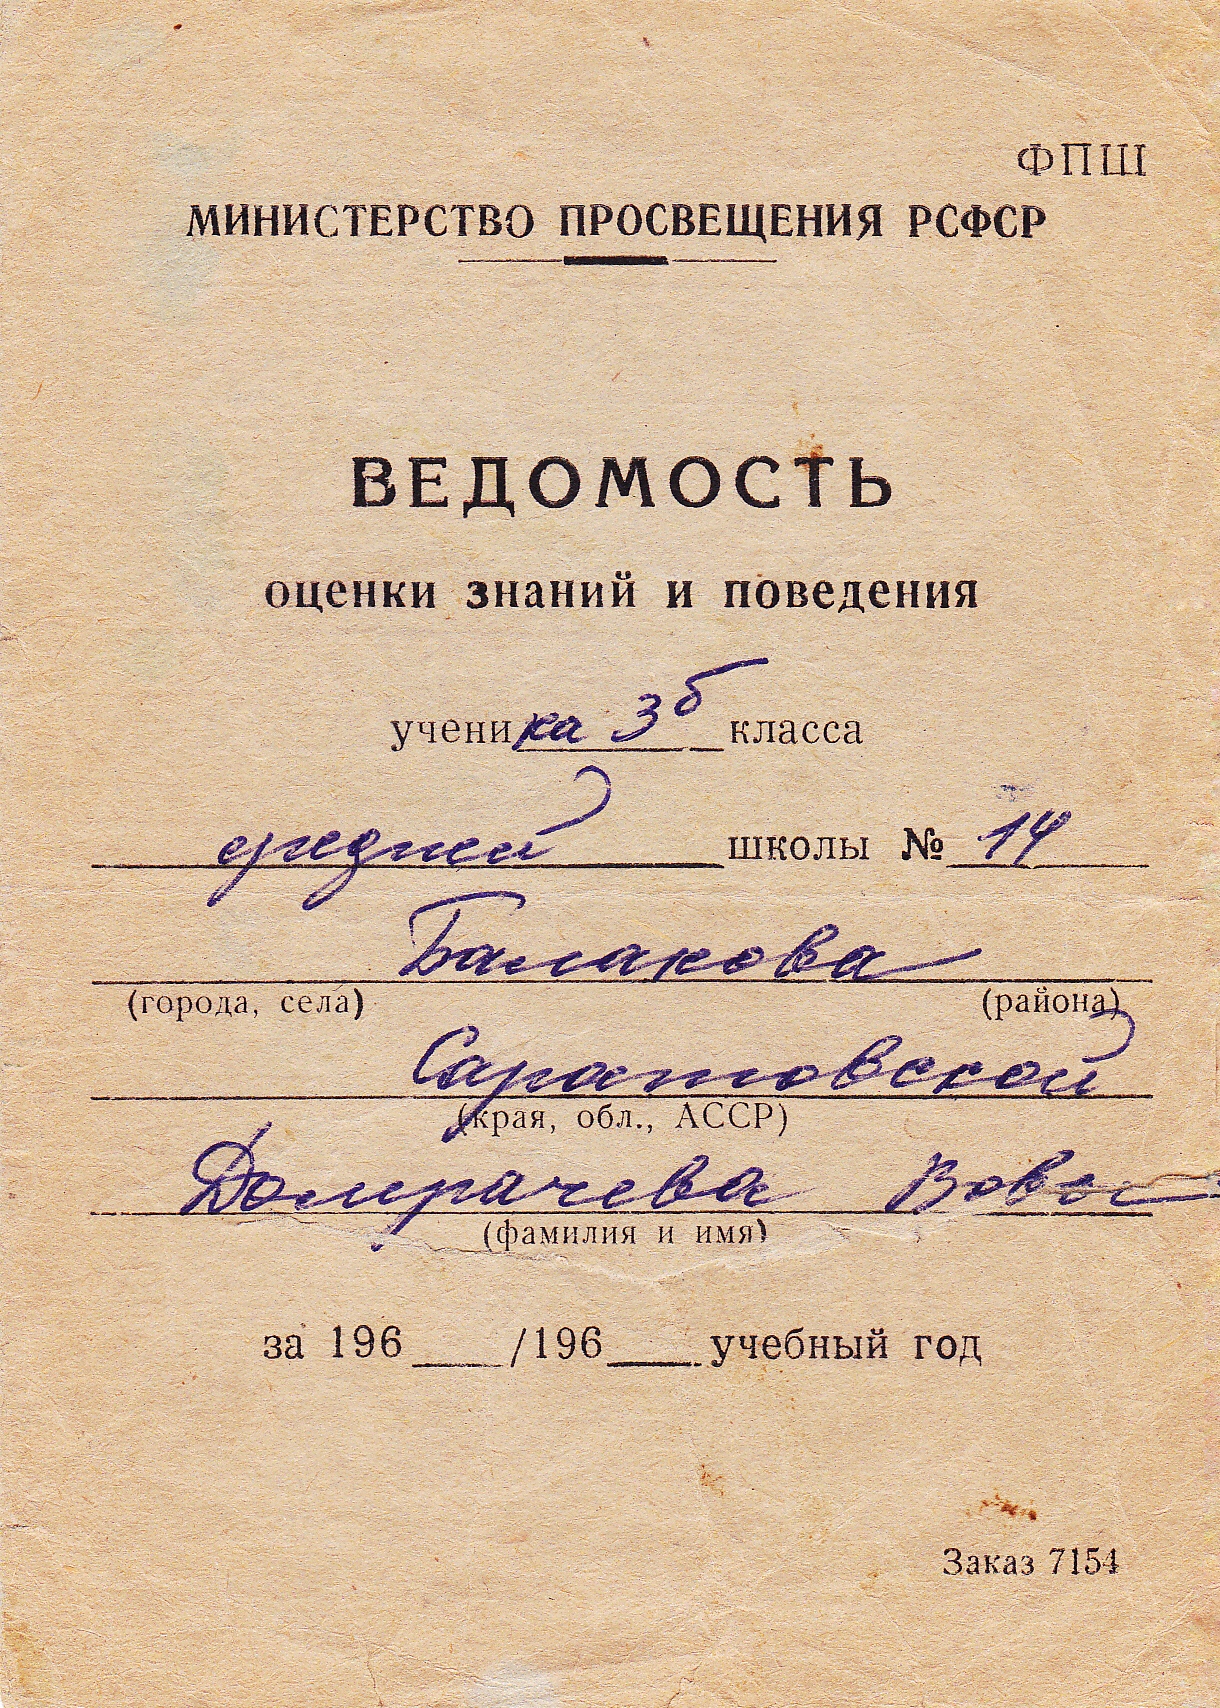 ФПШ
МИНИСТЕРСТВО ПРОСВЕЩЕНИЯ РСФСР
ВЕДОМОСТЬ
оценки знаний и поведения
ученика 3б класса
средней школы № 14
Балакова
(города, села) (района)
Саратовской
(края, обл., АССР)
Домрачева Вовы
(фамилия и имя)
за 196___/196___ учебный год
Заказ 7154